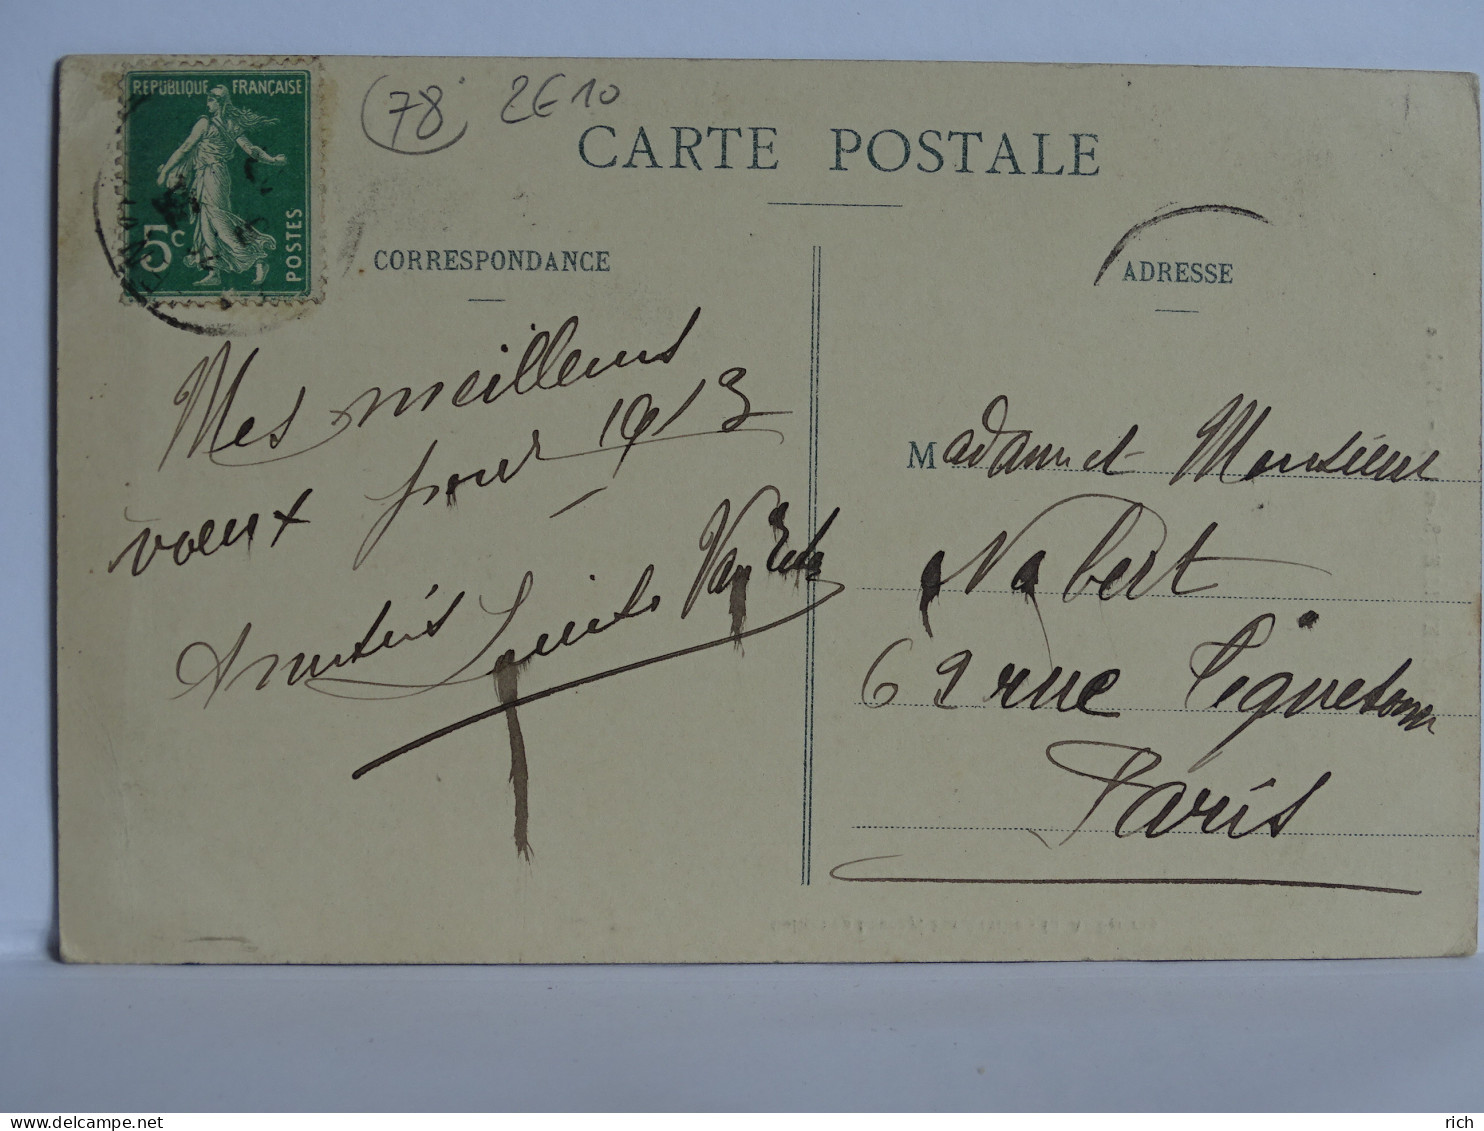 RÉPUBLIQUE FRANÇAISE
5c POSTES
(78) 2€10
CARTE POSTALE
CORRESPONDANCE
Mes meilleurs
voeux pour 1913
Amitiés Louise Van
ADRESSE
Madame et Monsieur
Nabert
62 rue Tiquetonne
Paris
delcampe.net
rich